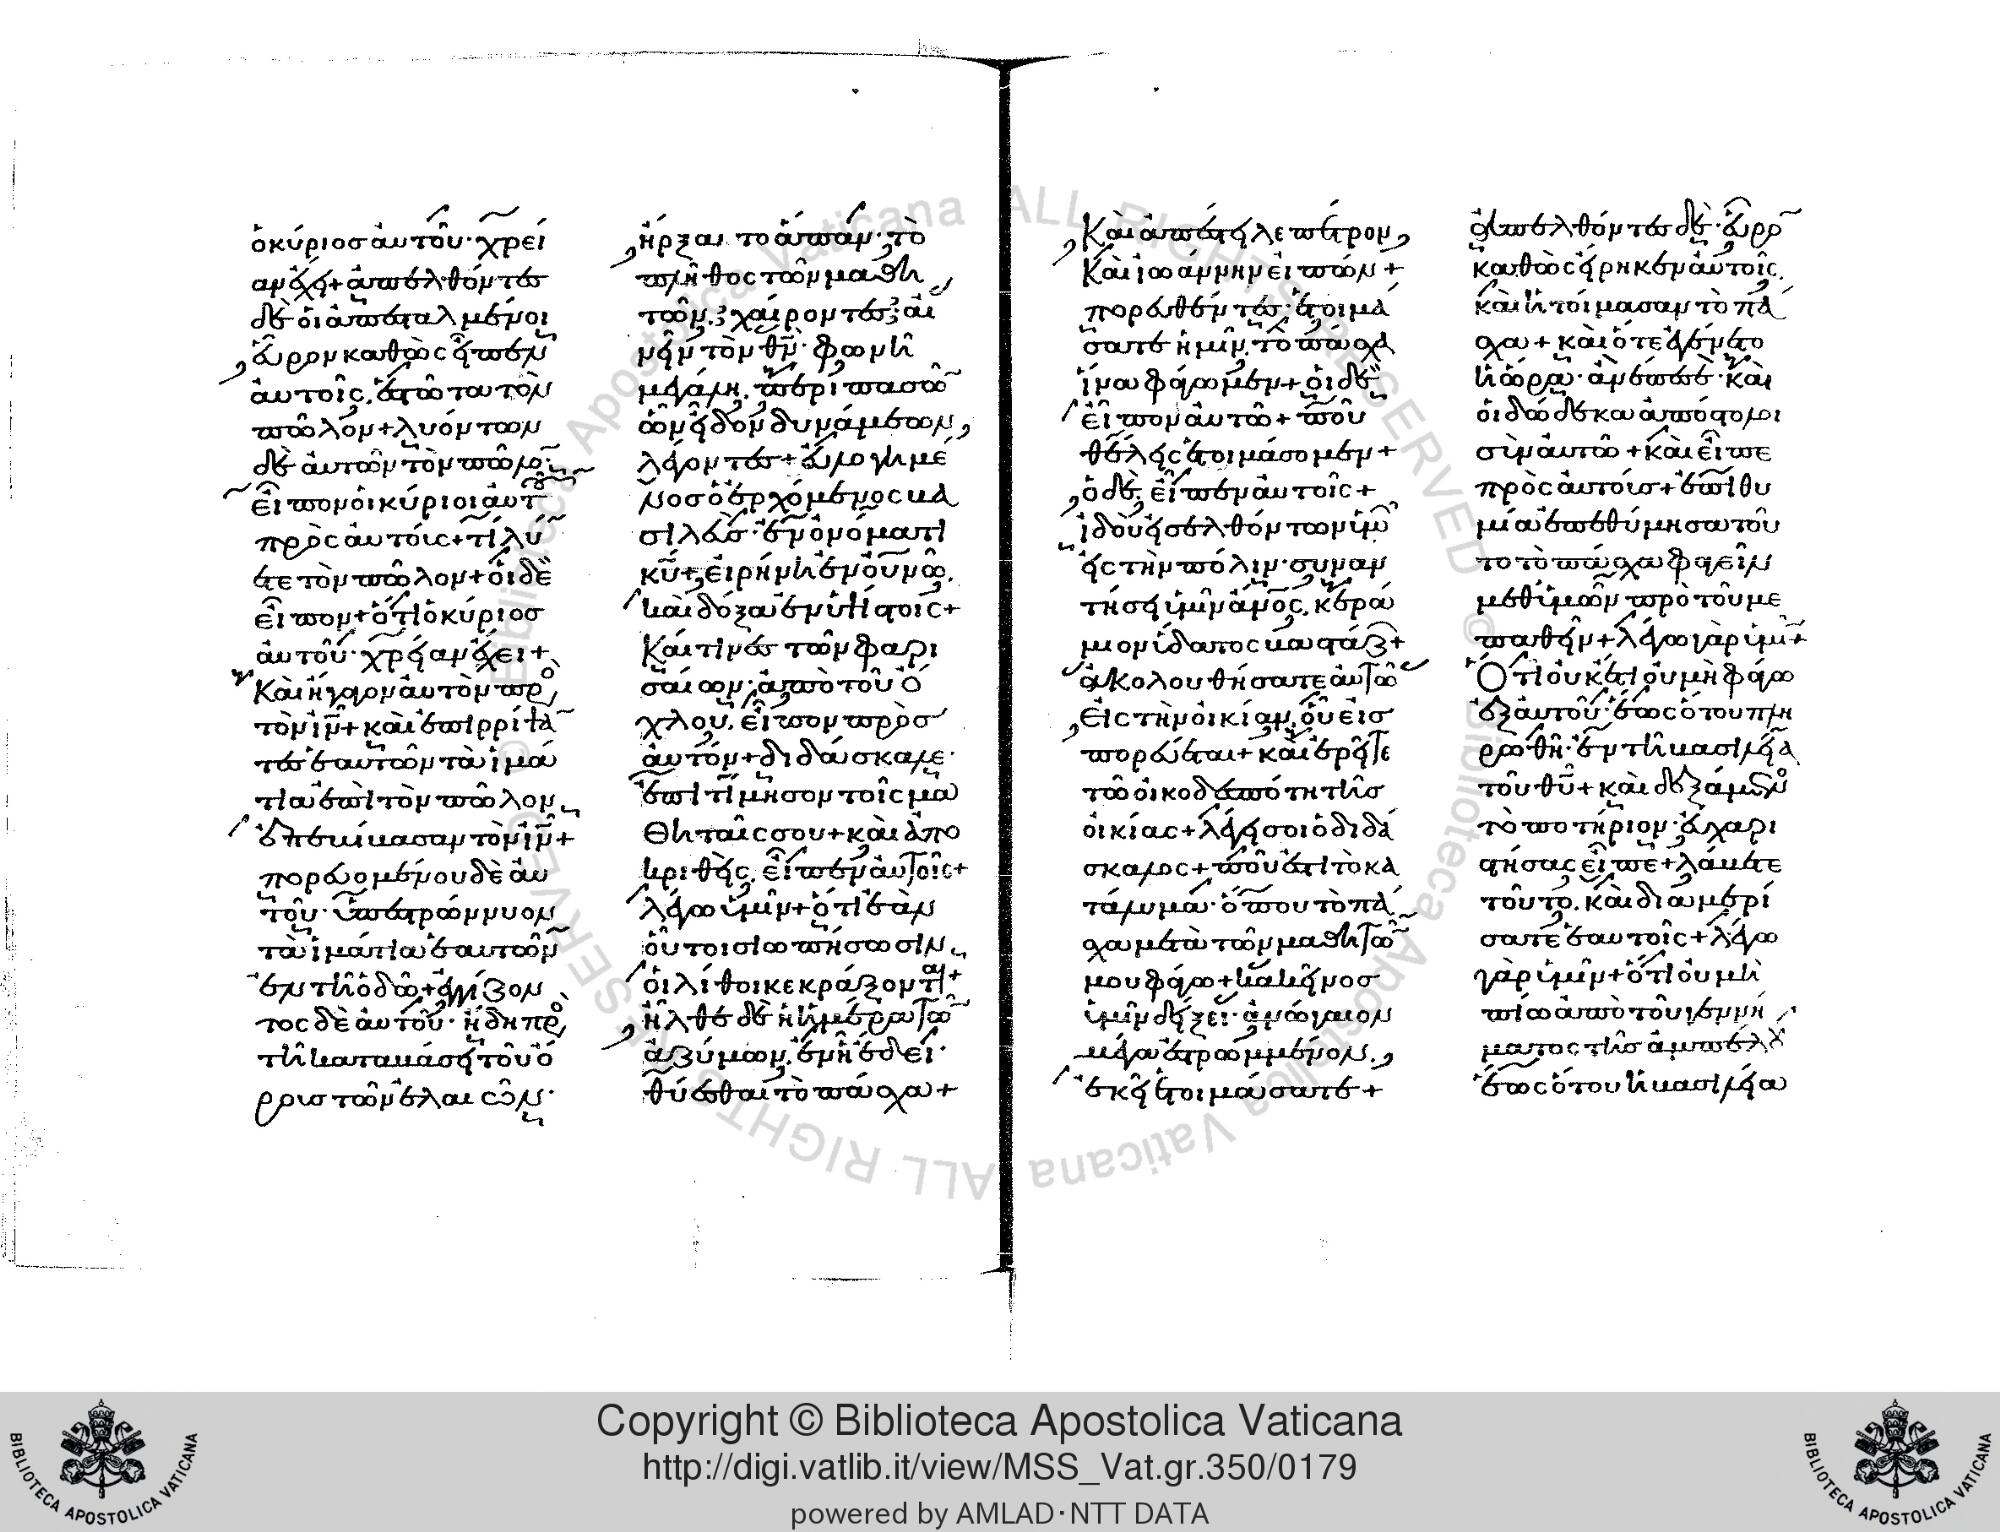 ὁ κύριος αὐτοῦ· χρεί
αν ἔχει+ ἀπελθόντες
δὲ οἱ ἀπεσταλμένοι
εὗρον καθὼς εἶπεν
αὐτοῖς, ἑστῶτα τὸν
πῶλον+ λυόντων
δὲ αὐτῶν τὸν πῶλο̅·
εἶπον οἱ κύριοι αὐτ
πρὸς αὐτούς+ τί λύ
ετε τὸν πῶλον+ οἱ δὲ
εἶπον+ ὅτι ὁ κύριος
αὐτοῦ· χρείαν ἔχει+
Καὶ ἤγαγον αὐτὸν πρὸ
τὸν ἰν̅+ καὶ ἐπιρρίψα̅
τες ἑαυτῶν τὰ ἱμά
τια ἐπὶ τὸν πῶλον,
ἐπεβίβασαν τὸν ἰν̅+
πορευομένου δὲ αὐ
τοῦ· ὑπεστρώννυον
τὰ ἱμάτια ἑαυτῶν
ἐν τῆ ὁδῶ+ ἐγγίζον
τος δὲ αὐτοῦ· ἤδη πρὸ
τῆ καταβάσει τοῦ ὄ
ρους τῶν ἐλαιῶν·
ἤρξατο ἅπαν· τὸ
πλῆθος τῶν μαθη
τῶν, χαίροντες αἰ
νεῖν τὸν θν̅· φωνῆ
μεγάλη, περὶ πασῶ̅
ὧν εἶδον δυνάμεων,
λέγοντες+ εὐλογημέ
νος ὁ ἐρχόμενος βα
σιλεὺς· ἐν ὀνόματι
κυ̅+ εἰρήνη ἐν οὐνω̅,
καὶ δόξα ἐν ὑψίστοις+
Καί τινες τῶν φαρι
σαίων· ἀπὸ τοῦ ὄ
χλου, εἶπον πρὸς
αὐτόν+ διδάσκαλε·
ἐπιτίμησον τοῖς μα
θηταῖς σου+ καὶ ἀπο
κριθεὶς, εἶπεν αὐτοῖς+
λέγω ὑμῖν+ ὅτι ἐὰν
οὗτοι σιωπήσωσιν,
οἱ λίθοι κεκράξονται+
ἦλθε δὲ ἡ ἡμέρα τῶ̅
ἀζύμων, ἐν ἧ ἔδει·
θύεσθαι τὸ πάσχα+
Καὶ ἀπέστειλε πέτρον,
καὶ ἰωάννην εἰπών+
πορευθέντες· ἑτοιμά
σατε ἡμῖν, τὸ πάσχα
ἵνα φάγωμεν+ οἱ δὲ
εἶπον αὐτῶ+ ποῦ
θέλεις ἑτοιμάσομεν+
ὁ δὲ, εἶπεν αὐτοῖς+
ἰδοὺ εἰσελθόντων ὑμῶ̅
εἰς τὴν πόλιν· συναν
τήσει ὑμῖν ἀ̅νο̅ς, κερά
μιον ὕδατος βαστάζ+
ἀκολουθήσατε αὐτῶ
εἰς τὴν οἰκίαν, οὗ εἰσ
πορεύεται+ καὶ ἐρεῖτε
τῶ οἰκοδεσπότη τῆς
οἰκίας+ λέγει σοι ὁ διδά
σκαλος+ ποῦ ἐστι τὸ κα
τάλυμα· ὅπου τὸ πά
σχα μετὰ τῶν μαθητῶ̅
μου φάγω+ κακεῖνος
ὑμῖν δείξει· ἀνώγαιον
μέγα ἐστρωμμένον,
ἐκεῖ ἑτοιμάσατε+
ἀπελθόντες δὲ· εὗρο̅
καθὼς εἴρηκεν αὐτοῖς,
καὶ ἡτοίμασαν τὸ πά
σχα+ καὶ ὅτε ἐγένετο
ἡ ὥρα· ἀνέπεσε· καὶ
οἱ δώδεκα ἀπόστολοι
σὺν αὐτῶ+ καὶ εἶπε
πρὸς αὐτούς+ ἐπιθυ
μία ἐπεθύμησα τοῦ
το τὸ πάσχα φαγεῖν
μεθ' ὑμῶν πρὸ τοῦ με
παθεῖν+ λέγω γὰρ ὑμῖ̅+
Ὅτι οὐκέτι οὐ μὴ φάγω
ἐξ αὐτοῦ· ἕως ὅτου πλη
ρωθῆ· ἐν τῆ βασιλεία
τοῦ θυ̅+ καὶ δεξάμενο
τὸ ποτήριον· εὐχαρι
στήσας εἶπε+ λάβετε
τοῦτο, καὶ διαμερί
σατε ἑαυτοῖς+ λέγω
γὰρ ὑμῖν+ ὅτι οὐ μὴ
πίω ἀπὸ τοῦ γεννή
ματος τῆς ἀμπέλου
ἕως ὅτου ἡ βασιλεία
Copyright © Biblioteca Apostolica Vaticana
http://digi.vatlib.it/view/MSS_Vat.gr.350/0179
powered by AMLAD·NTT DATA
BIBLIOTECA APOSTOLICA VATICANA
BIBLIOTECA APOSTOLICA VATICANA